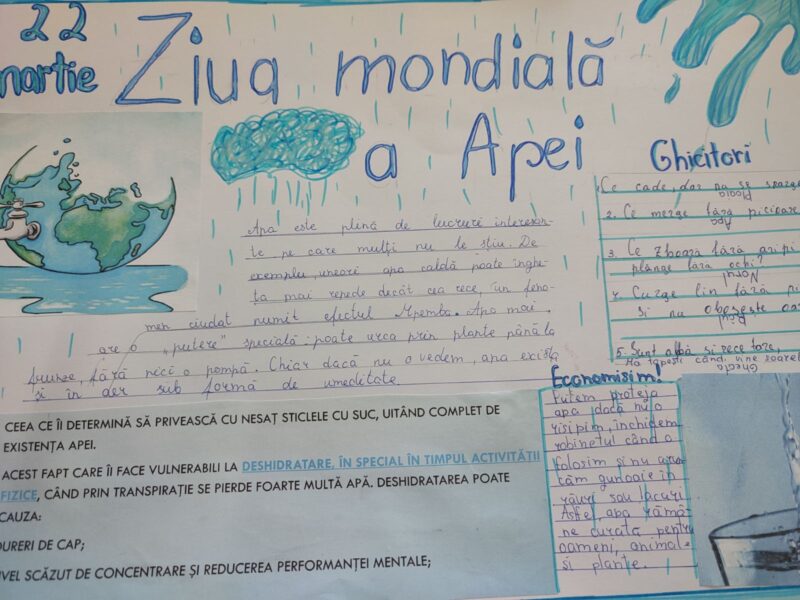 22
martie
Ziua mondială
a Apei
Apa este plină de lucruri interesan-
te pe care mulți nu le știu. De
exemplu, uneori apa caldă poate înghe-
ța mai repede decât cea rece, un feno-
men ciudat numit efectul Mpemba. Apa mai
are o „putere” specială: poate urca prin plante până la
frunze, fără nici o pompă. Chiar dacă nu o vedem, apa există
și în aer sub formă de umeditate.
Ghicitori
1. Ce cade, dar nu se sparge
Ploaia
2. Ce merge fără picioare
Apa
3. Ce zboară fără aripi
plânge fără ochi?
Norul
4. Curge lin fără
și nu obosește
5. Sunt albă și rece tare,
Mă topești când vine soarele
Gheața
Economisim!
Putem proteja
apa dacă nu o
risipim, închidem
robinetul când o
folosim și nu arun-
căm gunoaie în
râuri sau lacuri.
Astfel, apa rămâ-
ne curată pentru
oameni, animale
și plante.
CEEA CE ÎI DETERMINĂ SĂ PRIVEASCĂ CU NESAȚ STICLELE CU SUC, UITÂND COMPLET DE
EXISTENȚA APEI.
ACEST FAPT CARE ÎI FACE VULNERABILI LA DESHIDRATARE, ÎN SPECIAL ÎN TIMPUL ACTIVITĂȚII
FIZICE, CÂND PRIN TRANSPIRAȚIE SE PIERDE FOARTE MULTĂ APĂ. DESHIDRATAREA POATE
CAUZA:
DURERI DE CAP;
NIVEL SCĂZUT DE CONCENTRARE ȘI REDUCEREA PERFORMANȚEI MENTALE;